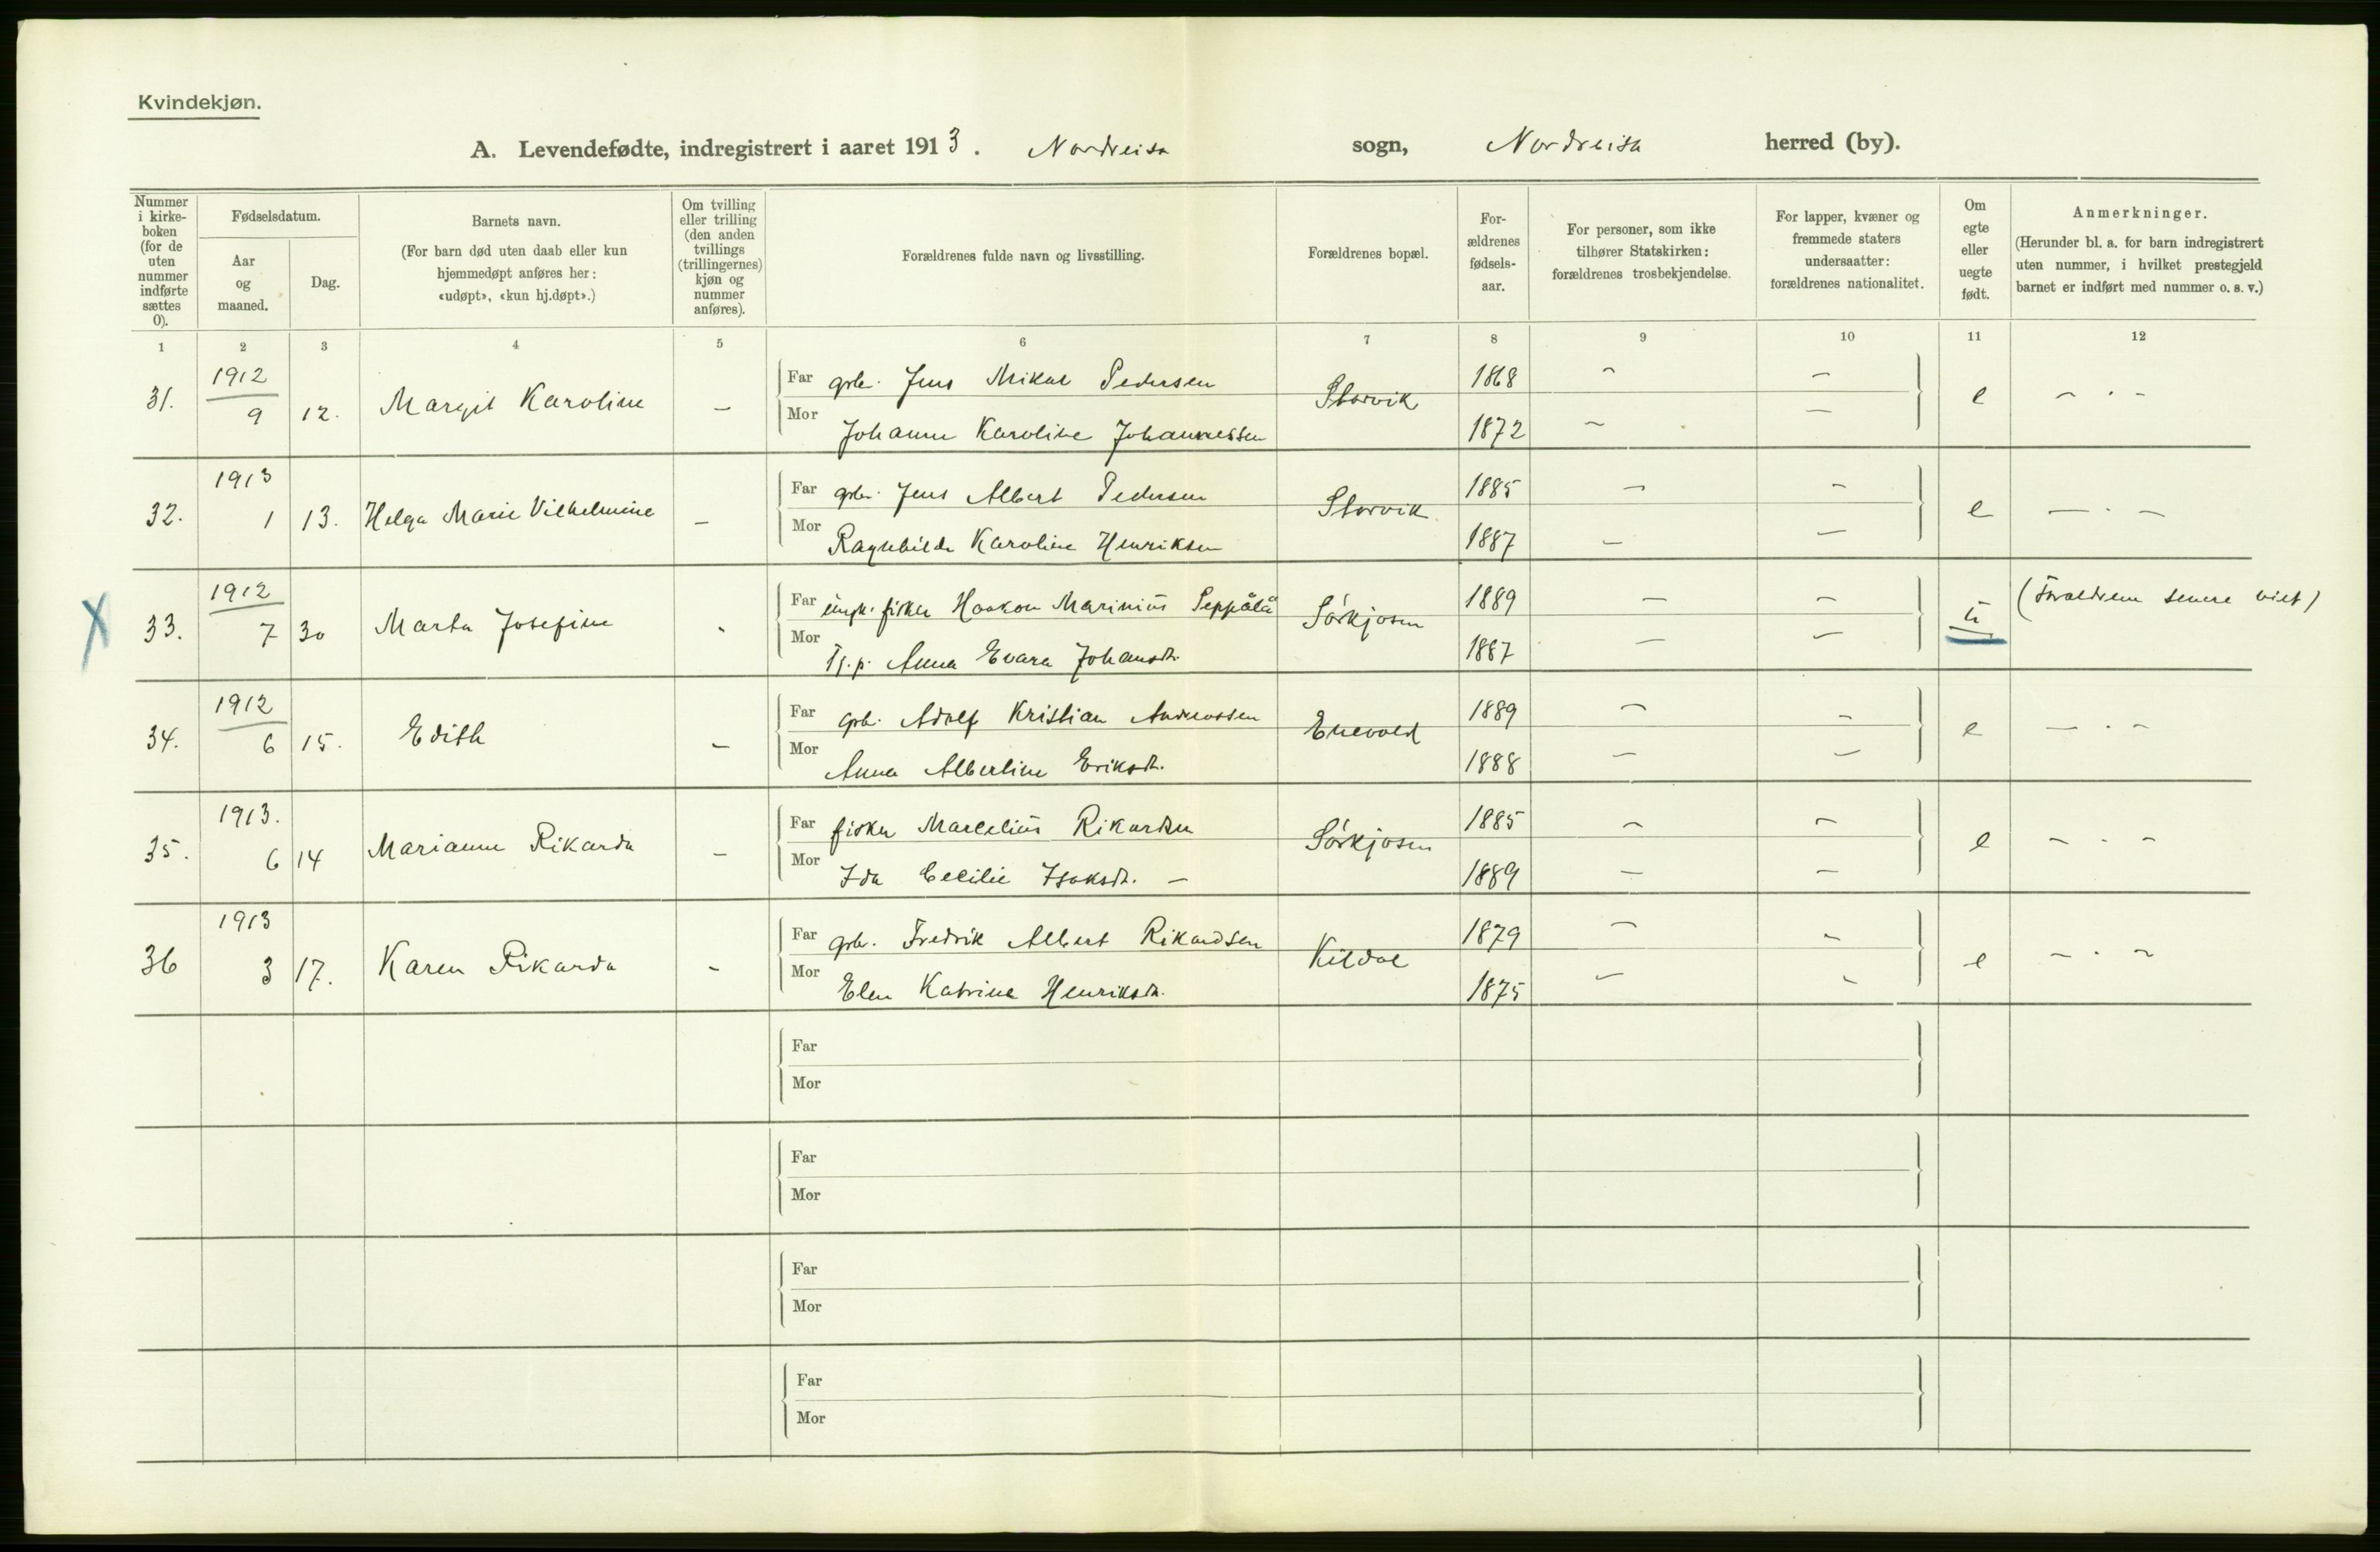 Kvindekjøn.
A. Levendefødte, indregistrert i aaret 1913. Nordreisa sogn, Nordreisa herred (by).
Nummer i kirke- boken (for de uten nummer indførte sættes 0).
Fødselsdatum.
Aar og maaned.
Dag.
Barnets navn.
(For barn død uten daab eller kun hjemmedøpt anføres her: «udøpt», «kun hj.døpt».)
Om tvilling eller trilling (den anden tvillings (trillingernes) kjøn og nummer anføres).
Forældrenes fulde navn og livsstilling.
Forældrenes bopæl.
For- ældrenes fødsels- aar.
For personer, som ikke tilhører Statskirken: forældrenes trosbekjendelse.
For lapper, kvæner og fremmede staters undersaatter: forældrenes nationalitet.
Om egte eller uegte født.
Anmerkninger.
(Herunder bl. a. for barn indregistrert uten nummer, i hvilket prestegjeld barnet er indført med nummer o. s. v.)
1 2 3 4 5 6 7 8 9 10 11 12
31. 1912 9 12. Margit Karoline – Far gbr. Jens Mikal Pedersen Storvik 1868 – – e – · –
Mor Johanne Karoline Johannessen 1872 – –
32. 1913 1 13. Helga Marie Vilhelmine – Far gbr. Jens Albert Pedersen Storvik 1885 – – e – · –
Mor Ragnhilda Karoline Henriksen 1887 – –
X 33. 1912 7 30 Marta Josefine - Far ungk. fisker Haakon Marinius Seppälä Sørkjosen 1889 – – u (Forældrene senere viet)
Mor Tj.p. Anna Evara Johansdt. 1887 – –
34. 1912 6 15. Edith – Far gbr. Adolf Kristian Andreassen Snevold 1889 – – e – · –
Mor Anna Albertine Eriksdt. 1888 – –
35. 1913. 6 14 Marianne Rikarda – Far fisker Marselius Rikardsen Sørkjosen 1885 – – e – · –
Mor Ida Cecilie Isaksdt. – 1889 – –
36 1913 3 17. Karen Rikarda - Far gbr. Fredrik Albert Rikardsen Kildal 1879 – – e – · –
Mor Elen Katrine Henriksdt. 1875 – –
Far
Mor
Far
Mor
Far
Mor
Far
Mor